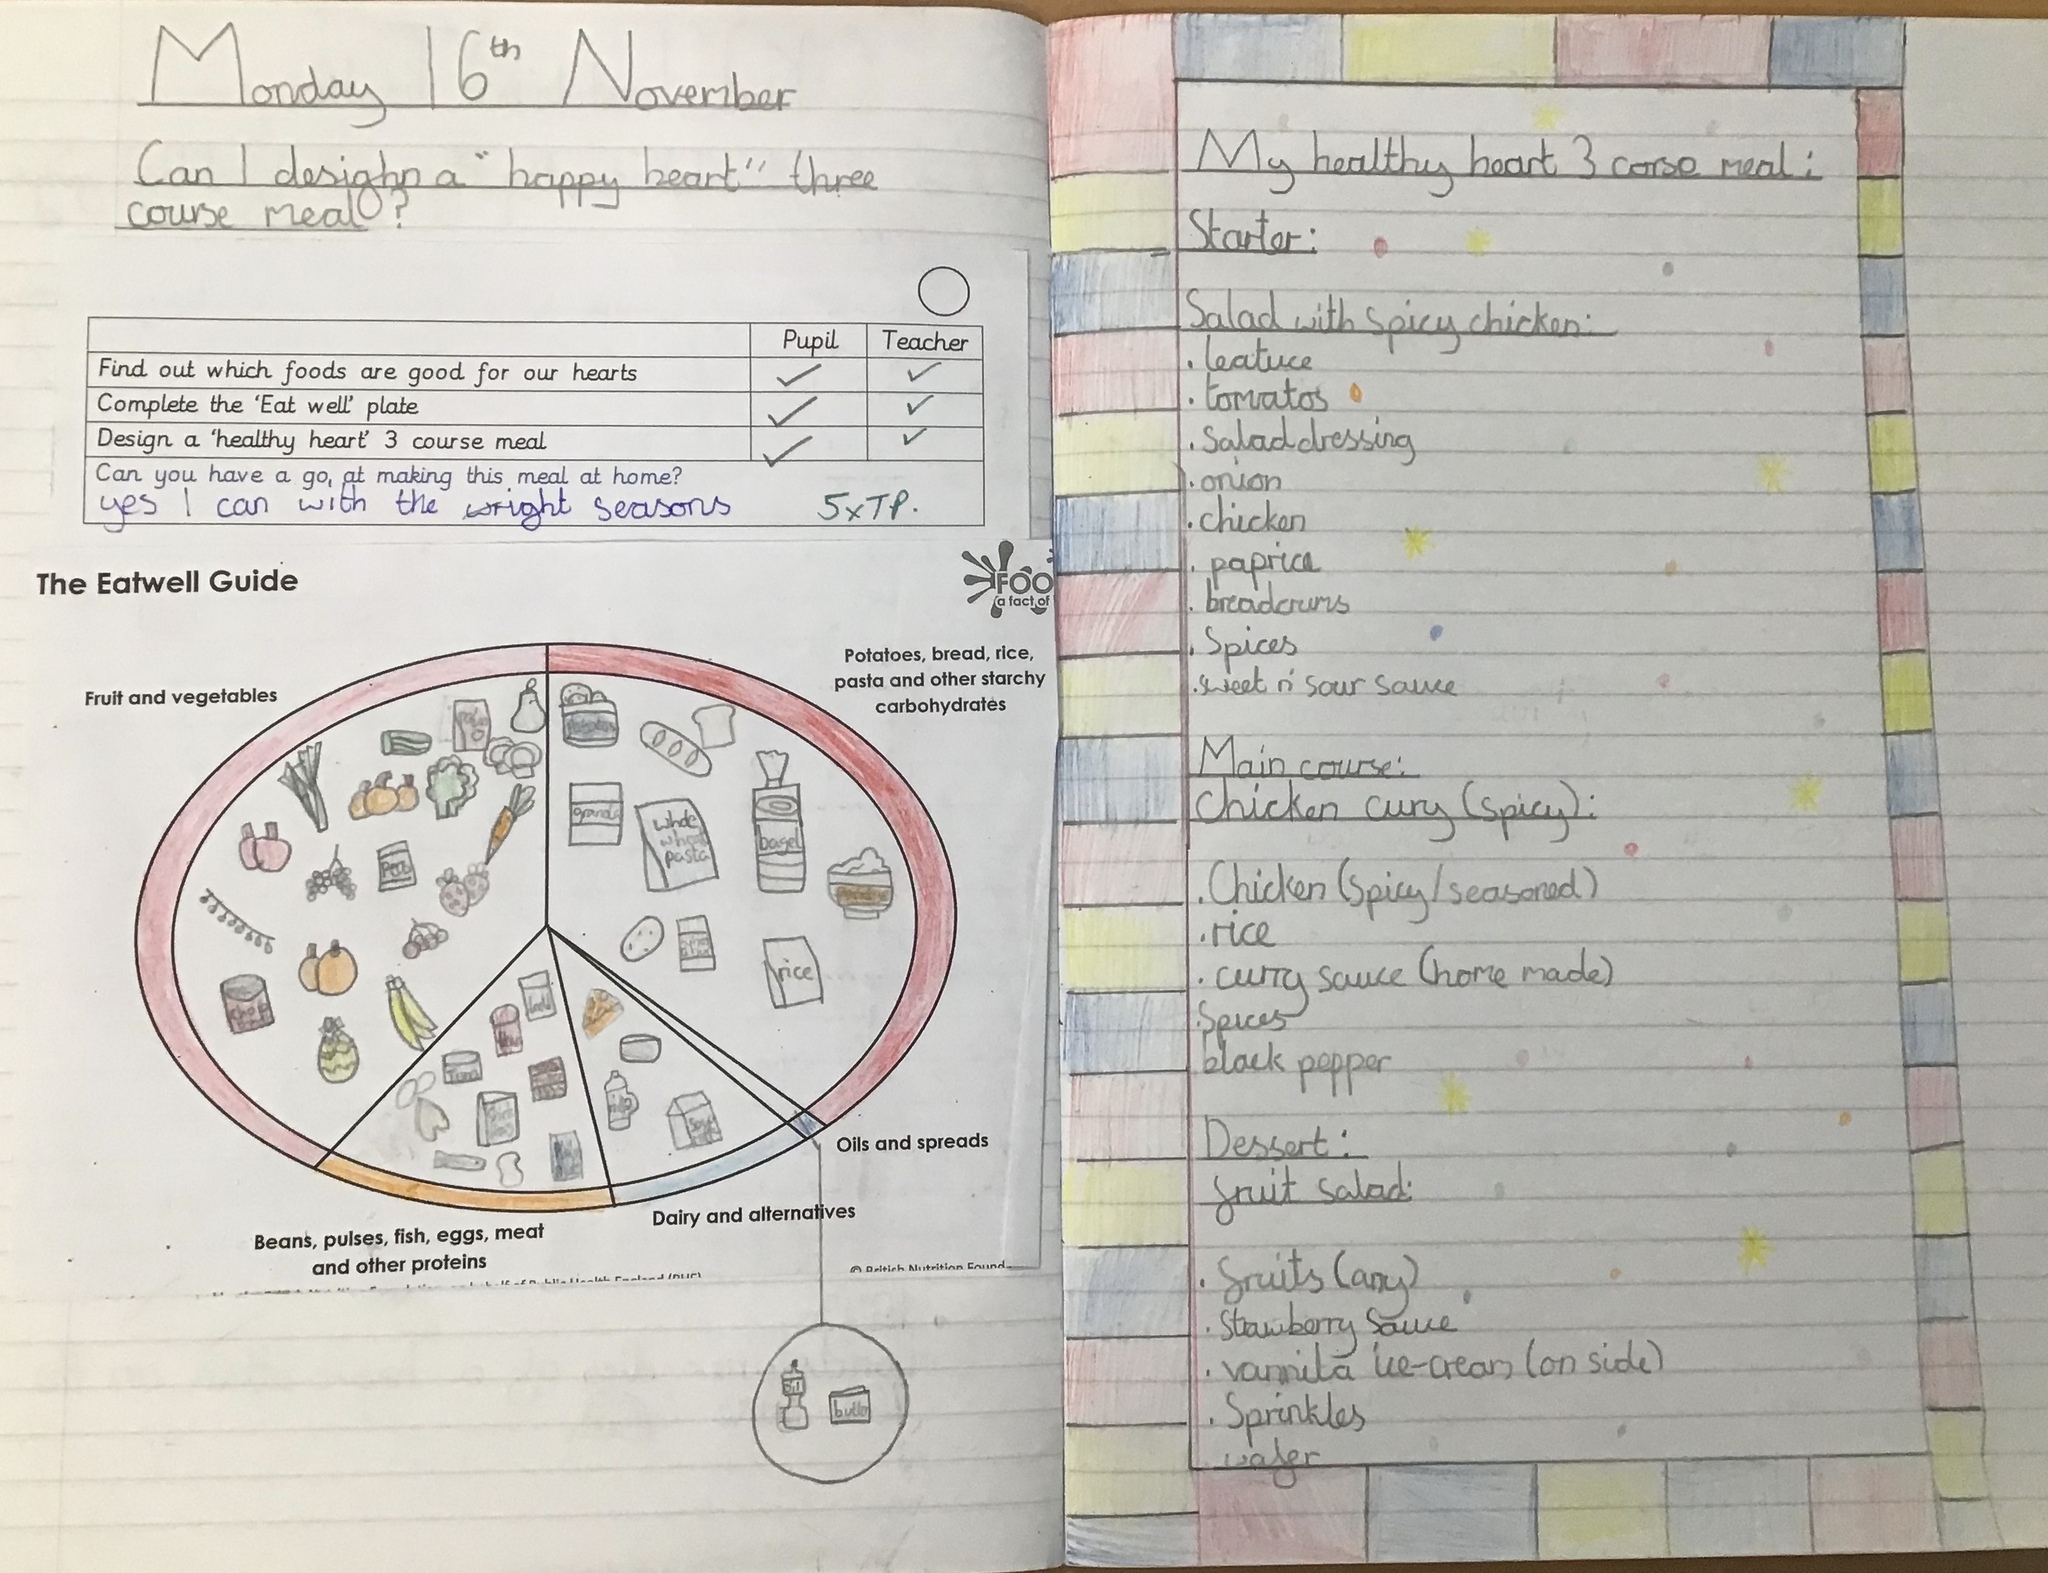 Monday 16th November
Can I desighn a "happy heart" three
course meal?
Pupil Teacher
Find out which foods are good for our hearts
Complete the 'Eat well' plate
Design a 'healthy heart' 3 course meal
Can you have a go, at making this meal at home?
yes I can with the wright seasons 5xTP.
The Eatwell Guide
FOO
a fact of
Fruit and vegetables
Potatoes, bread, rice,
pasta and other starchy
carbohydrates
whole
wheat
pasta
bagel
rice
Tuna
Oils and spreads
Dairy and alternatives
Beans, pulses, fish, eggs, meat
and other proteins
© British Nutrition Found
My healthy heart 3 corse meal:
Starter:
Salad with spicy chicken:
. leatuce
. tomatos
. Salad dressing
. onion
. chicken
. paprica
. breadcrums
. Spices
. sweet n' sour sauce
Main course:
Chicken cury (spicy):
. Chicken (spicy/seasoned)
. rice
. curry sauce (home made)
. Spices
black pepper
Dessert:
fruit salad:
. fruits (any)
. Strawberry sauce
. vannila ice-cream (on side)
. Sprinkles
wafer